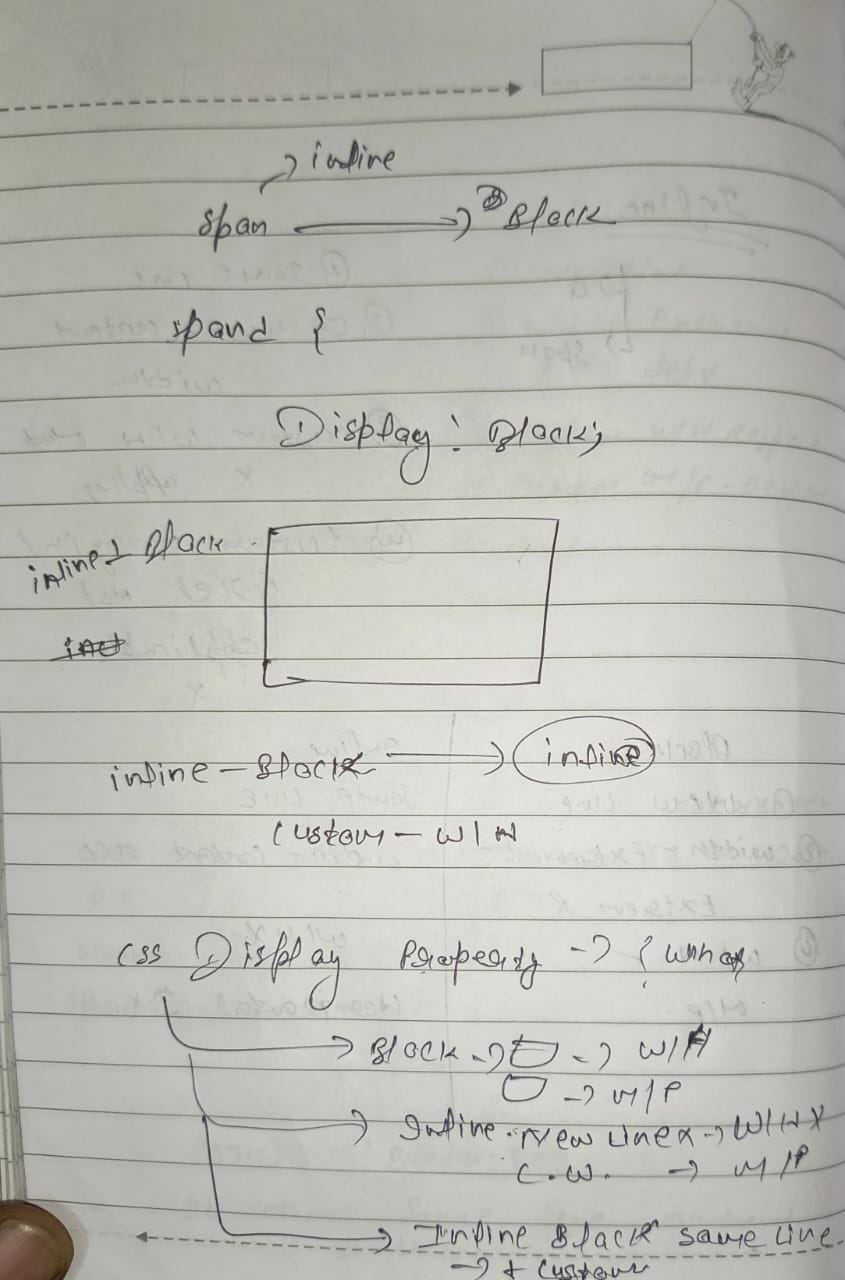 inline
span → Block
spand {
Display : Block;
inline + Block
inline - Block → inline
Custom - W/H
CSS Display Property → {
Block → → W/H
→ M/P
Inline. New Line x → W/H X
C.W. → M/P
Inline Block same line
→ + Custom